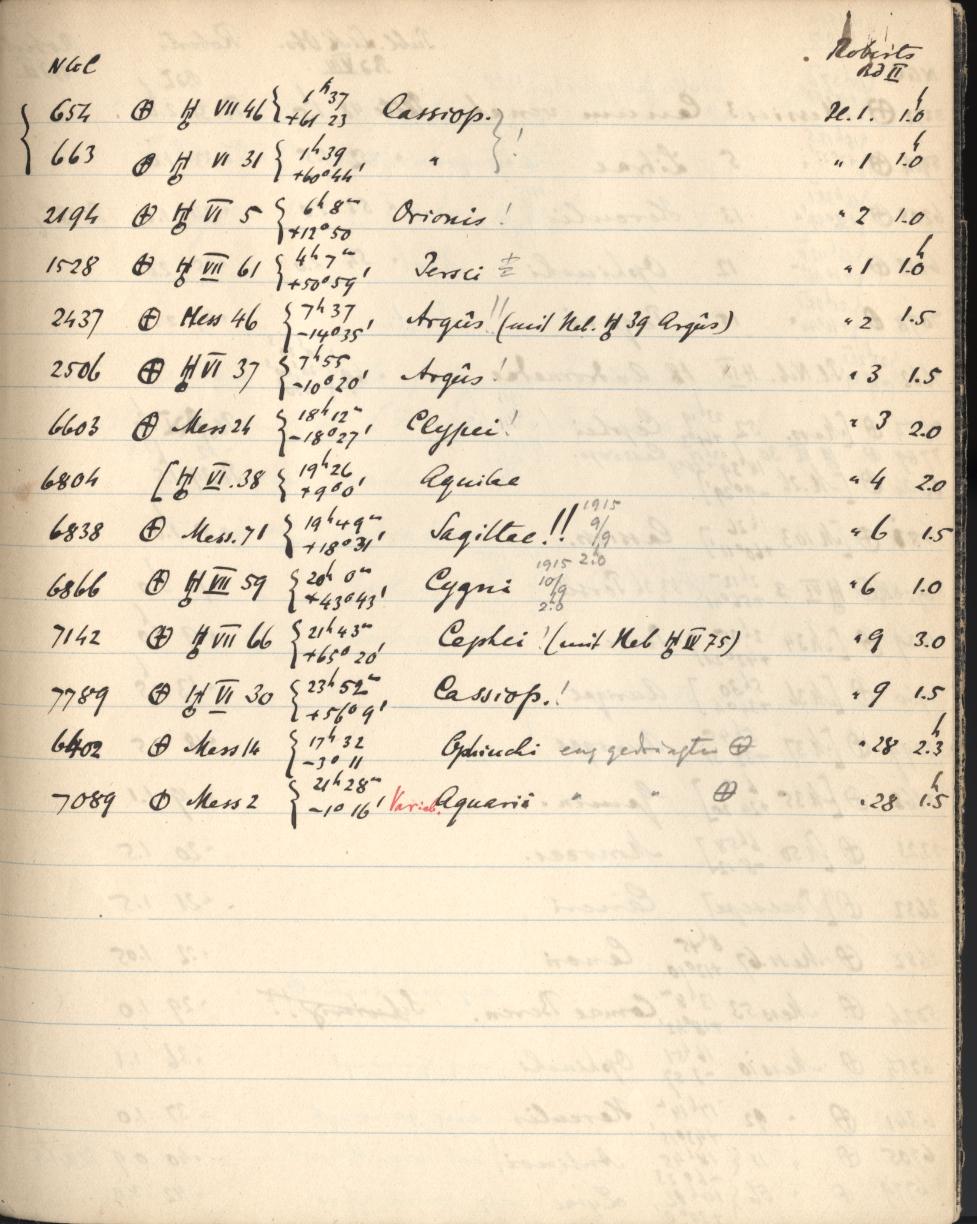 NGC Roberts Bd II
654 ⊕ H VII 46 { 1ʰ37 +61 23 Cassiop. ! H. 1. 1.0ʰ
663 ⊕ H VI 31 { 1ʰ39 +60°44' " " 1 1.0ʰ
2194 ⊕ H VI 5 { 6ʰ8ᵐ +12°50 Orionis ! " 2 1.0
1528 ⊕ H VII 61 { 4ʰ7ᵐ +50°59' Persei " 1 1.0ʰ
2437 ⊕ Mess 46 { 7ʰ37 -14°35' Argûs !! (mit Neb. H 39 Argûs) " 2 1.5
2506 ⊕ H VI 37 { 7ʰ55 -10°20' Argûs ! " 3 1.5
6603 ⊕ Mess 24 { 18ʰ12ᵐ -18°27' Clypei ! " 3 2.0
6804 [H VI. 38 { 19ʰ26 +9°0' Aquilae " 4 2.0
6838 ⊕ Mess. 71 { 19ʰ49ᵐ +18°31' Sagittae !! 1915 9/9 2.0 " 6 1.5
6866 ⊕ H VII 59 { 20ʰ0ᵐ +43°43' Cygni 1915 10/9 2.0 " 6 1.0
7142 ⊕ H VII 66 { 21ʰ43ᵐ +65°20' Cephei ! (mit Neb H IV 75) " 9 3.0
7789 ⊕ H VI 30 { 23ʰ52ᵐ +56°9' Cassiop. ! " 9 1.5
6402 ⊕ Mess 14 { 17ʰ32 -3°11 Ophiuchi eng gedrängter ⊕ " 28 2.3ʰ
7089 ⊕ Mess 2 { 21ʰ28ᵐ -1°16' Variab. Aquarii " " ⊕ " 28 1.5ʰ